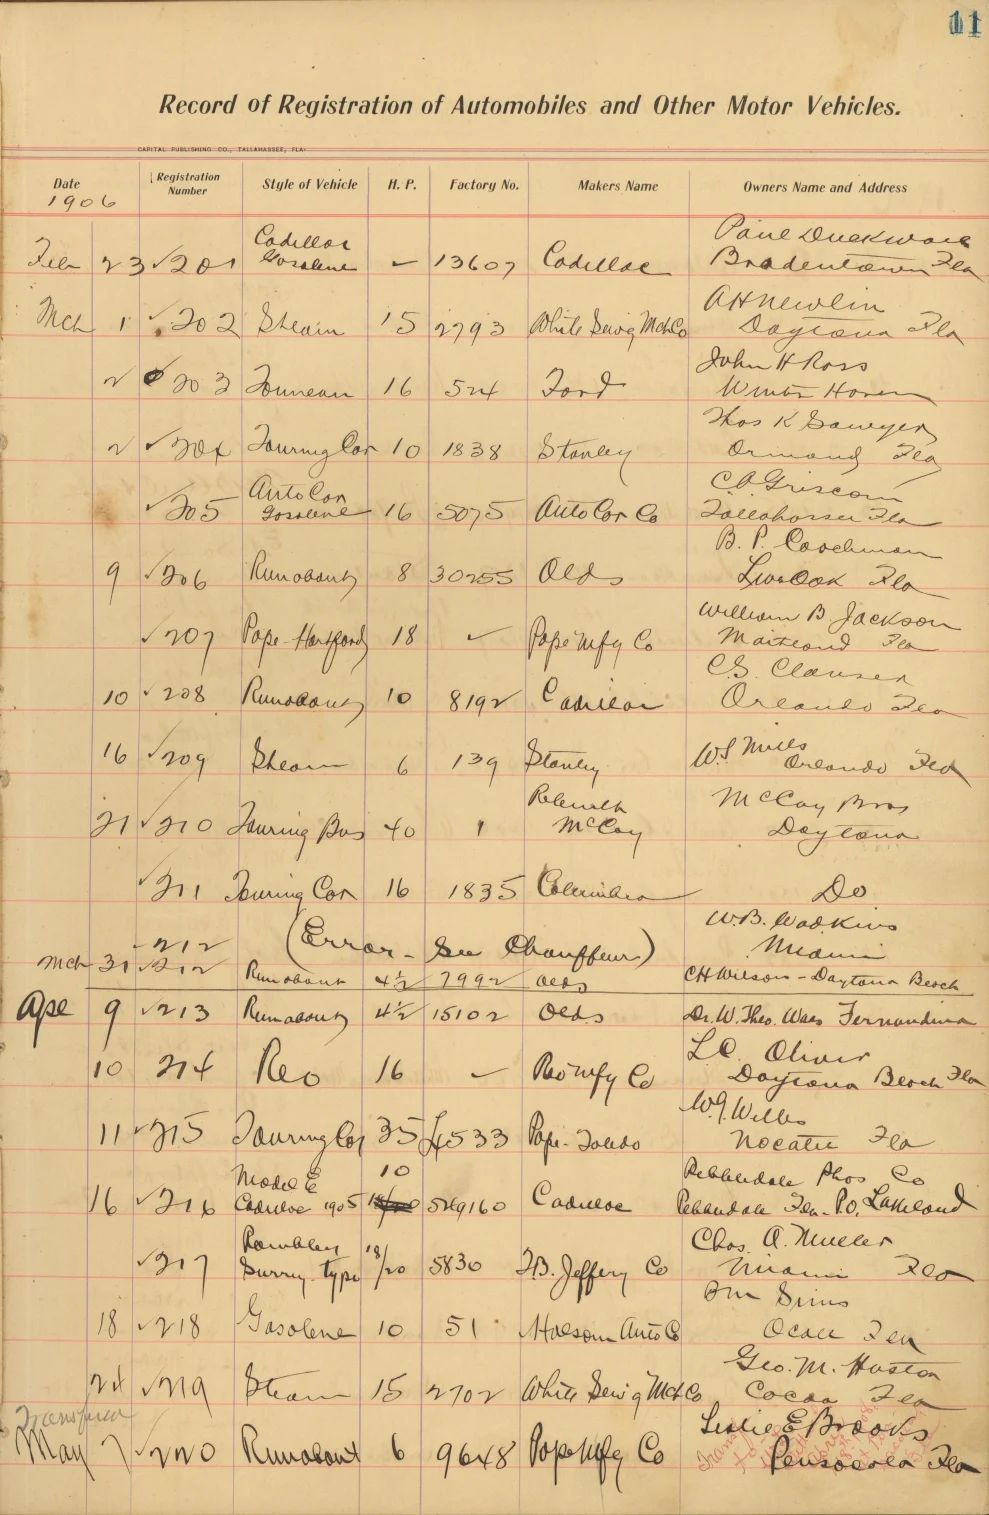 11
Record of Registration of Automobiles and Other Motor Vehicles.
CAPITAL PUBLISHING CO., TALLAHASSEE, FLA.
Date Registration Number Style of Vehicle H. P. Factory No. Makers Name Owners Name and Address
1906
Cadillac Paul Duckwall
Feb 23 ✓201 Gasolene — 13607 Cadillac Bradentown Fla
A H Newlin
Mch 1 ✓202 Steam 15 2793 White Sewg Mch Co Daytona Fla
John H Ross
2 203 Tonneau 16 524 Ford Winter Haven
Thos K Sawyer
2 ✓204 Touring Car 10 1838 Stanley Ormond Fla
Auto Car C.A. Griscom
✓205 Gasolene 16 5075 Auto Car Co Tallahassee Fla
B. P. Coachman
9 ✓206 Runabout 8 30255 Olds Live Oak Fla
William B. Jackson
✓207 Pope-Hartford 18 ✓ Pope Mfg Co Maitland Fla
C.S. Clauser
10 ✓208 Runabout 10 8192 Cadillac Orlando Fla
W.S Mills
16 ✓209 Steam 6 139 Stanley Orlando Fla
McCoy Bros
21 ✓210 Touring Bus 40 1 McCoy Daytona
✓211 Touring Car 16 1835 Columbia Do
W.B. Wadkins
212 (Error - See Chauffeur) Miami
Mch 31 ✓212 Runabout 4½ 7992 Olds CH Wilson - Daytona Beach
Apr 9 ✓213 Runabout 4½ 15102 Olds Dr. W. Theo. Fernandina
L.C. Oliver
10 214 Reo 16 ✓ Reo Mfg Co Daytona Beach Fla
W.G. Welles
11 ✓215 Touring Car 35 4533 Pope-Toledo Nocatee Fla
Model E 10 Pebbledale Phos Co
16 ✓216 Cadillac 1905 Cadillac Pebbledale Fla. P.O. Lakeland
Rambler Chas. A. Mueller
✓217 Surrey-type 18/20 5830 T.B. Jeffery Co Miami Fla
Sims
18 ✓218 Gasolene 10 51 Holsom Auto Co Ocala Fla
Geo. M. Huston
24 ✓219 Steam 15 2702 White Sewig Mch Co Cocoa Fla
Transferred Leslie E Brooks
May 7 ✓220 Runabout 6 9648 Pope Mfg Co Pensacola Fla